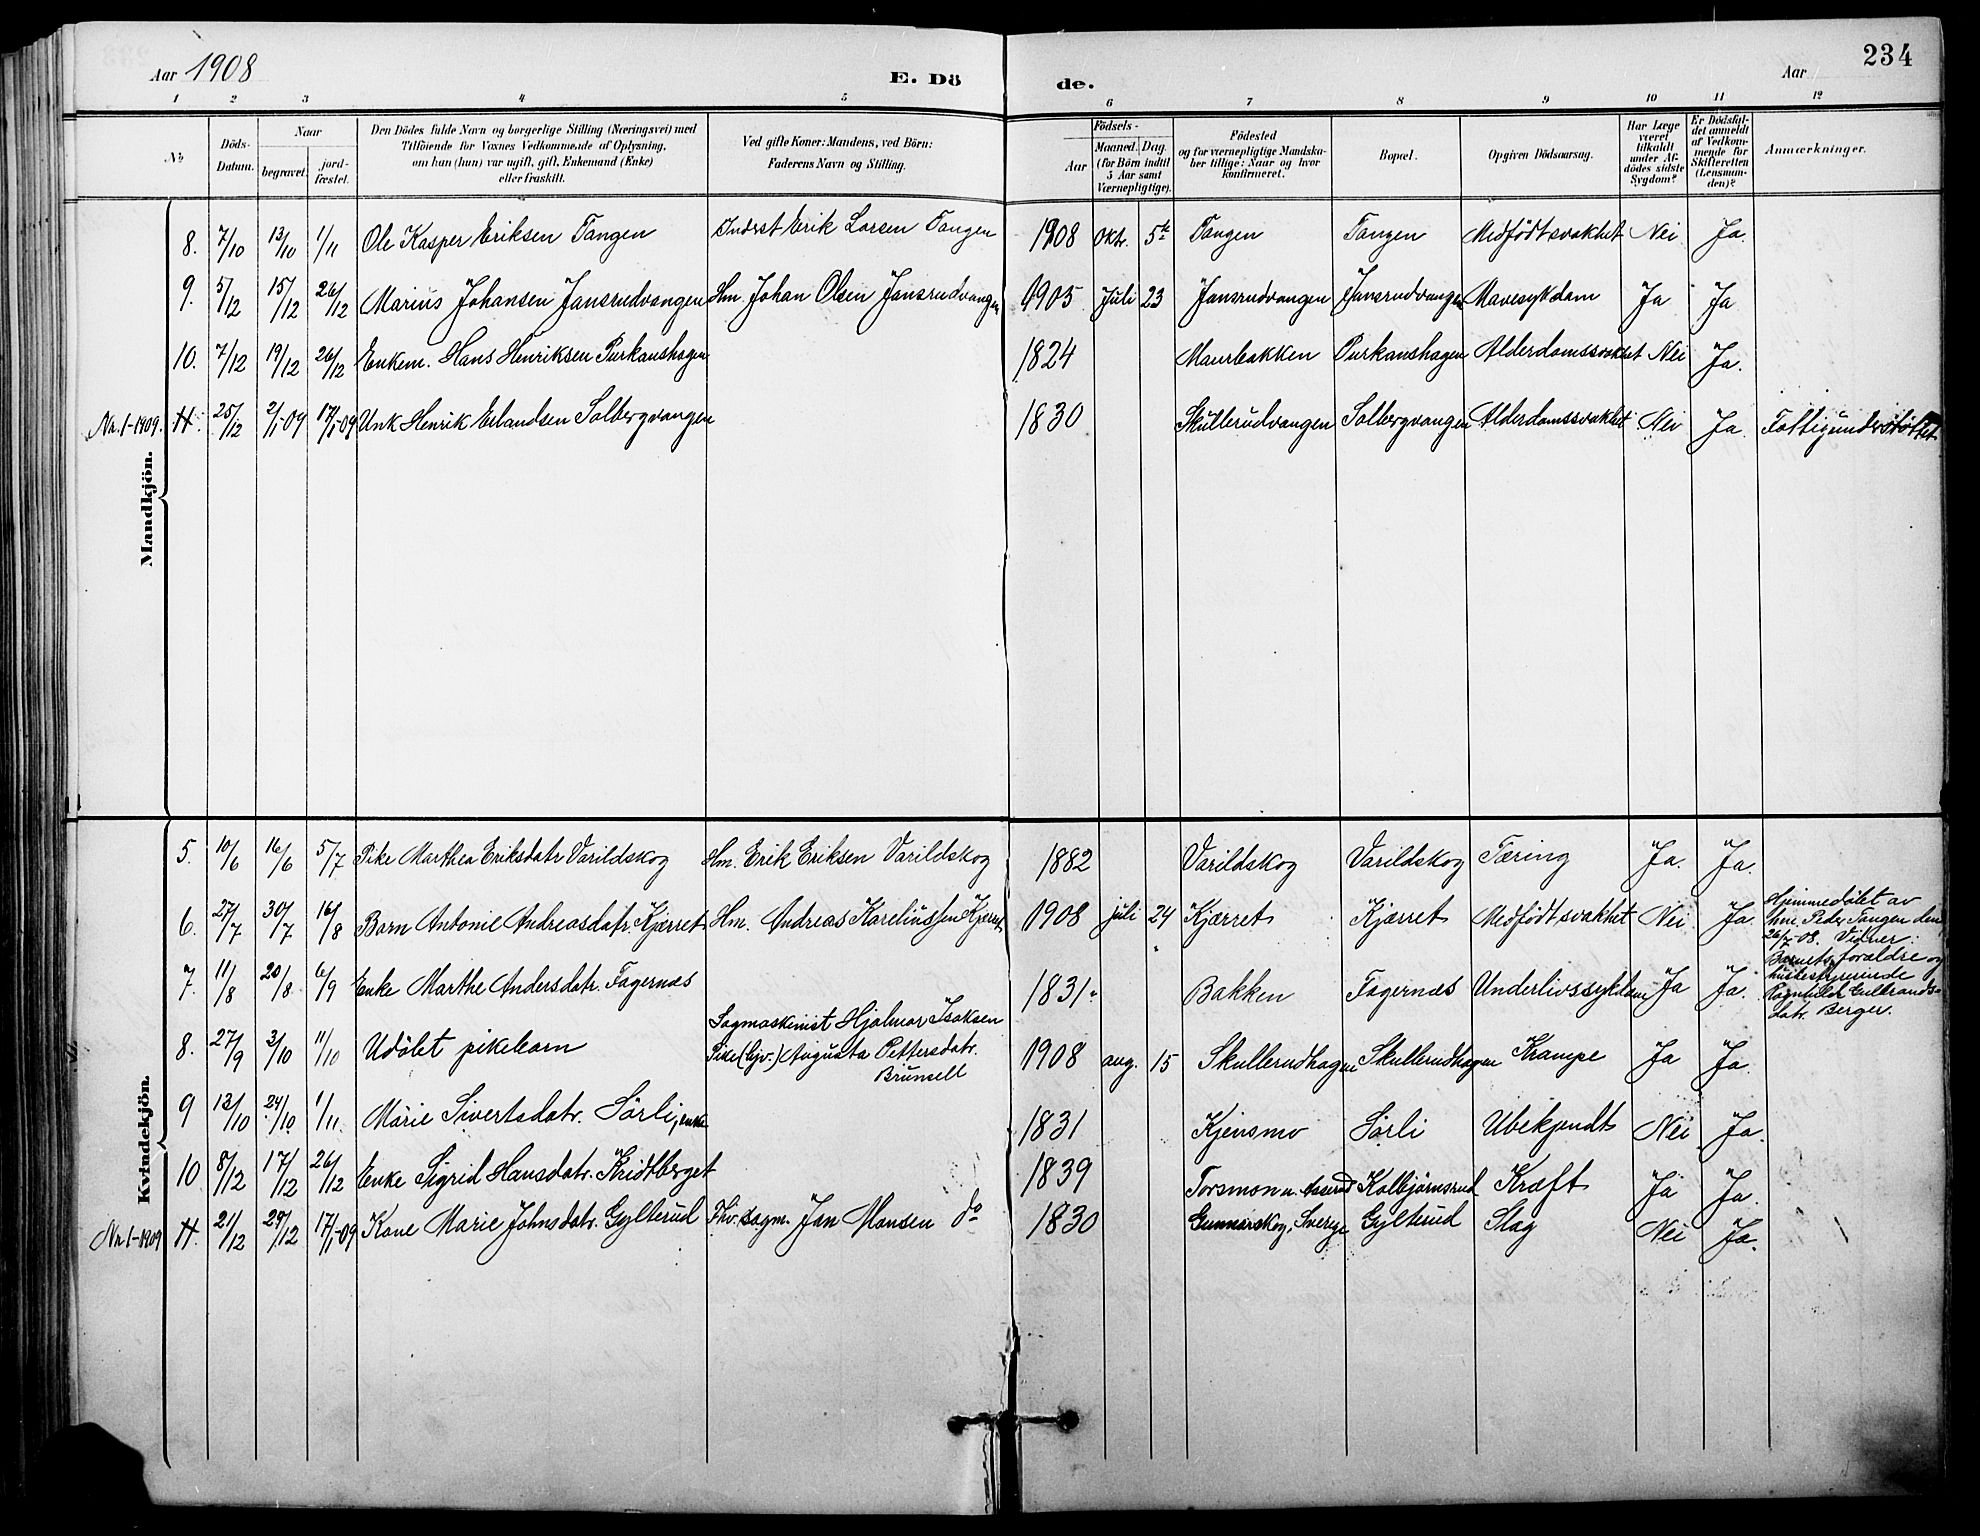 Aar 1908 E. Dö de. Aar 234
1 2 3 4 5 6 7 8 9 10 11 12
No
Döds-
Datum.
Naar
begravet.
jord-
fæstet.
Den Dödes fulde Navn og borgerlige Stilling (Næringsvei) med
Tilföiende for Voxnes Vedkommende af Oplysning,
om han (hun) var ugift, gift, Enkemand (Enke)
eller fraskilt.
Ved gifte Koner: Mandens, ved Börn:
Faderens Navn og Stilling.
Födsels-
Aar
Maaned. Dag.
(for Börn indtil
5 Aar samt
Værnepligtige).
Födested
og for værnepligtige Mandska-
ber tillige: Naar og hvor
konfirmeret.
Bopæl.
Opgiven Dödsaarsag.
Har Læge
været
tilkaldt
under Af-
dödes sidste
Sygdom?
Er Dödsfal-
det anmeldt
af Vedkom-
mende for
Skifteretten
(Lensman-
den)?
Anmærkninger.
Mandkjön.
8. 7/10 13/10 1/11 Ole Kasper Eriksen Tangen Inderst Erik Larsen Tangen 1908 Okt. 5te Tangen Tangen Medfödt svakhet Nei Ja.
9. 5/12 15/12 26/12 Marius Johansen Jansrudvangen Hm. Johan Olsen Jansrudvangen 1905 Juli 23 Jansrudvangen Jansrudvangen Mavesykdom Ja Ja
10. 7/12 19/12 26/12 Enkem. Hans Henriksen Purkanshagen 1824 Maurbakken Purkanshagen Alderdomssvakhet Nei Ja.
Nr. 1-1909. 11. 25/12 2/1-09 17/1-09 Unk Henrik Erlandsen Solbergvangen 1830 Skullerudvangen Solbergvangen Alderdomssvakhet Nei Ja. Fattigunderstöttet
Kvindekjön.
5. 10/6 16/6 5/7 Pike Marthea Eriksdatr Varildskog Hm. Erik Eriksen Varildskog 1882 Varildskog Varildskog Tæring Ja. Ja.
6. 27/7 30/7 16/8 Barn Antonie Andreasdatr. Kjærret Hm. Andreas Kareliussen Kjærret 1908 juli 24 Kjærret Kjærret Medfödt svakhet Nei Ja. Hjemmedöbt av
hm. Peder Tangen den
26/7-08. Vidner:
Barnets foraldre og
husbestyrerinde
Ragnhild Gulbrands-
datr. Berger.
7. 11/8 20/8 6/9 Enke Marthe Andersdatr. Fagernæs 1831. Bakken Fagernæs Underlivssykdom Ja Ja.
8. 27/9 3/10 11/10 Udöbt pikebarn Sagmaskinist Hjalmar Isaksen
Pike (tjv.) Augusta Pettersdatr.
Brunsell 1908 aug. 15 Skullerudhagen Skullerudhagen Krampe Ja Ja.
9 13/10 24/10 1/11. Marie Sivertsdatr. Sörli, enke 1831 Kjensmo Sörli Ubekjendt Nei Ja.
10. 8/12 17/12 26/12 Enke Sigrid Hansdatr. Kridtberget 1839 Torsmon u. Asserud Kolbjörnsrud Kræft Ja Ja.
Nr. 1-1909 11. 21/12 29/12 17/1-09 Kone Marie Johnsdatr. Gylterud Fhv. sagm. Jan Hansen do 1830 Gunnarskog, Sverige Gylterud Slag Nei Ja.